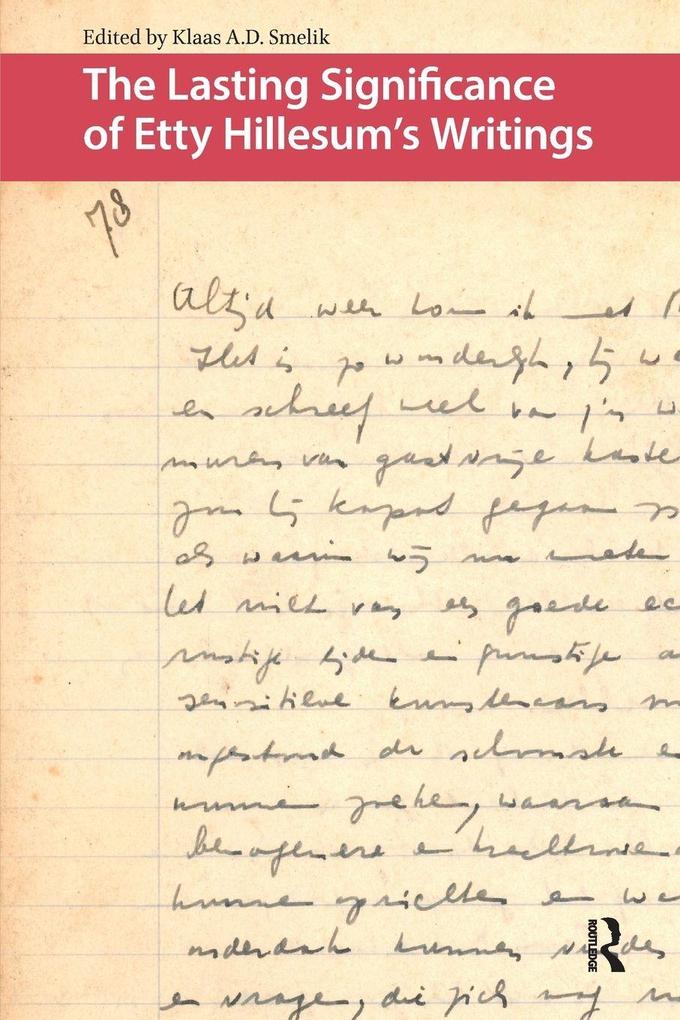 Edited by Klaas A.D. Smelik
The Lasting Significance
of Etty Hillesum's Writings
78
Altijd weer kom ik met
Het is zo wonderlijk, hij
en schreef veel van z'n
muren van gastvrije
zou hij kapot gegaan
als waarin wij nu moeten
het niet van een goede
rustige tijden en gunstige
sensitieve kunstenaars
ongestoord de schoonste
kunnen zoeken, waaraan
bewogener en
kunnen oprichten en
onderdak kunnen vinden
en vragen, die zich nog
ROUTLEDGE